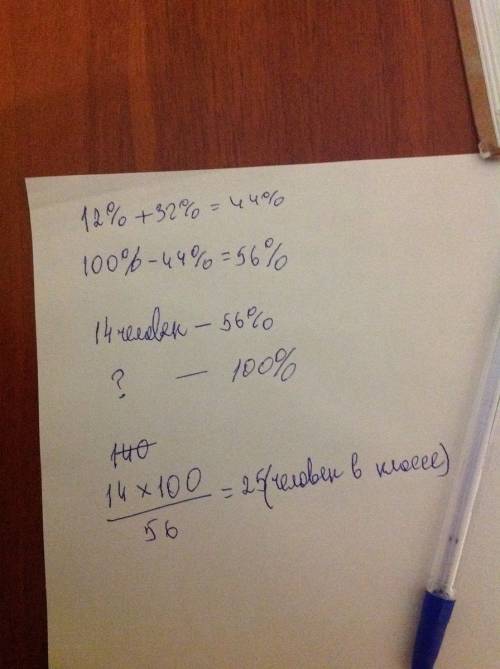 12% + 32% = 44%
100% - 44% = 56%
14 человек — 56%
? — 100%
140
14 × 100
56
= 25 (человек в классе)